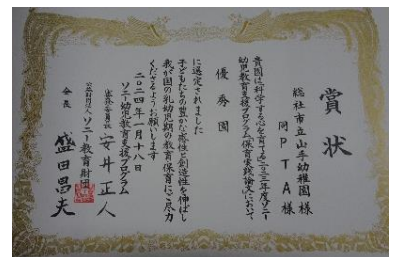 賞状
総社市立山手幼稚園様
同PTA様
貴園は科学する心を育てる二〇二三年度ソニー
幼児教育支援プログラム「保育実践論文」において
優秀園
に選定されました
子どもたちの豊かな感性と創造性を伸ばし
我が国の乳幼児期の教育保育にご尽力
くださるようお願いします
二〇二四年一月十八日
ソニー幼児教育支援プログラム
審査委員長 安井正人
公益財団法人ソニー教育財団
会長 盛田昌夫